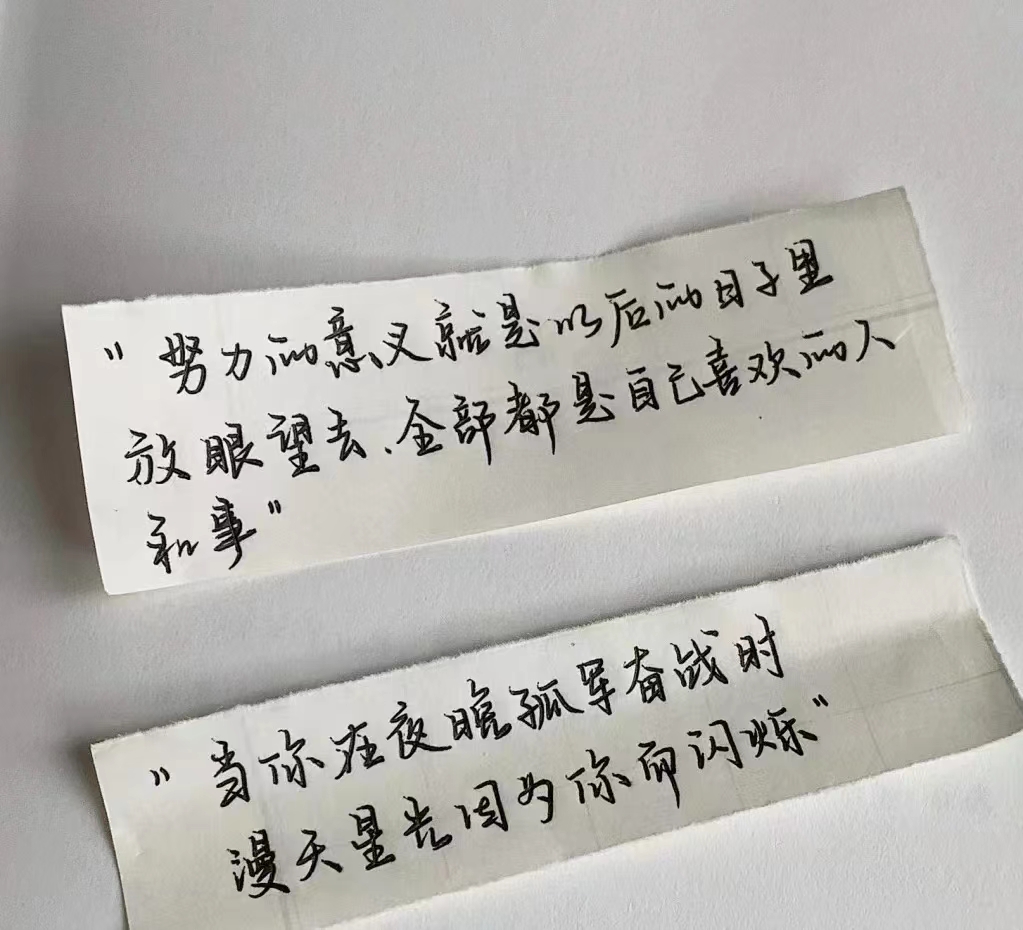 "努力的意义就是以后的日子里
放眼望去、全部都是自己喜欢的人
和事"
"当你在夜晚孤军奋战时
漫天星光因为你而闪烁"